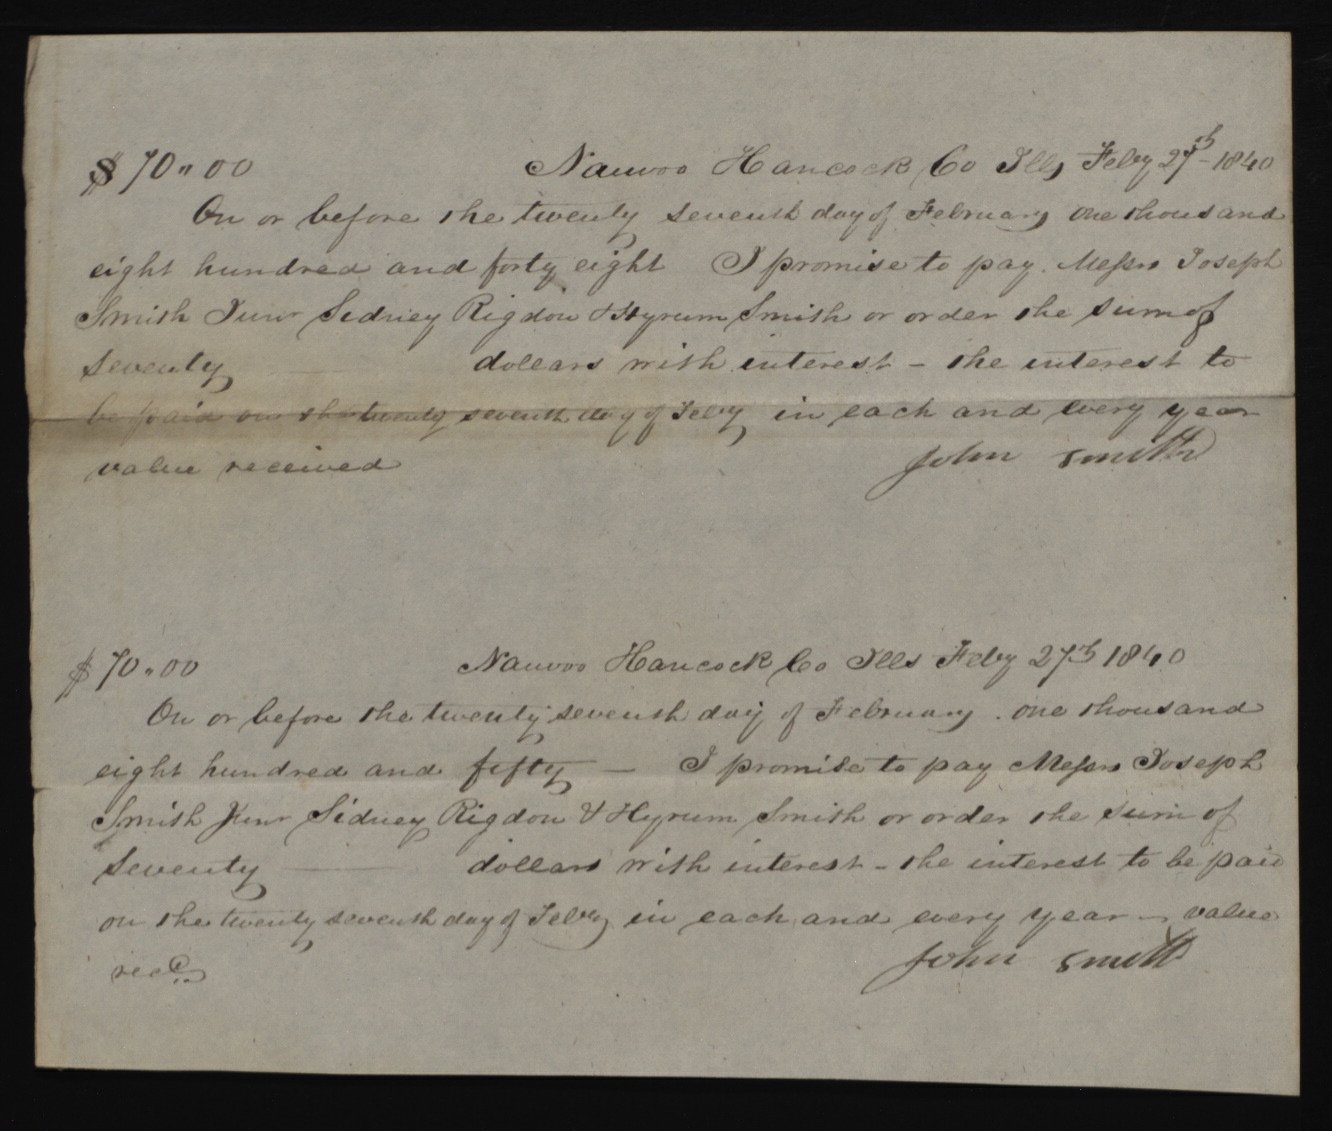 $70.00 Nauvoo Hancock Co Ills Feby 27th 1840
On or before the twenty seventh day of February one thousand
eight hundred and forty eight I promise to pay Messrs Joseph
Smith Junr Sidney Rigdon & Hyrum Smith or order the sum of
seventy dollars with interest - the interest to
be paid on the twenty seventh day of Feby in each and every year
value received John Smith
$70.00 Nauvoo Hancock Co Ills Feby 27th 1840
On or before the twenty seventh day of February one thousand
eight hundred and fifty — I promise to pay Messrs Joseph
Smith Junr Sidney Rigdon & Hyrum Smith or order the sum of
seventy dollars with interest - the interest to be paid
on the twenty seventh day of Feby in each and every year - value
recd John Smith